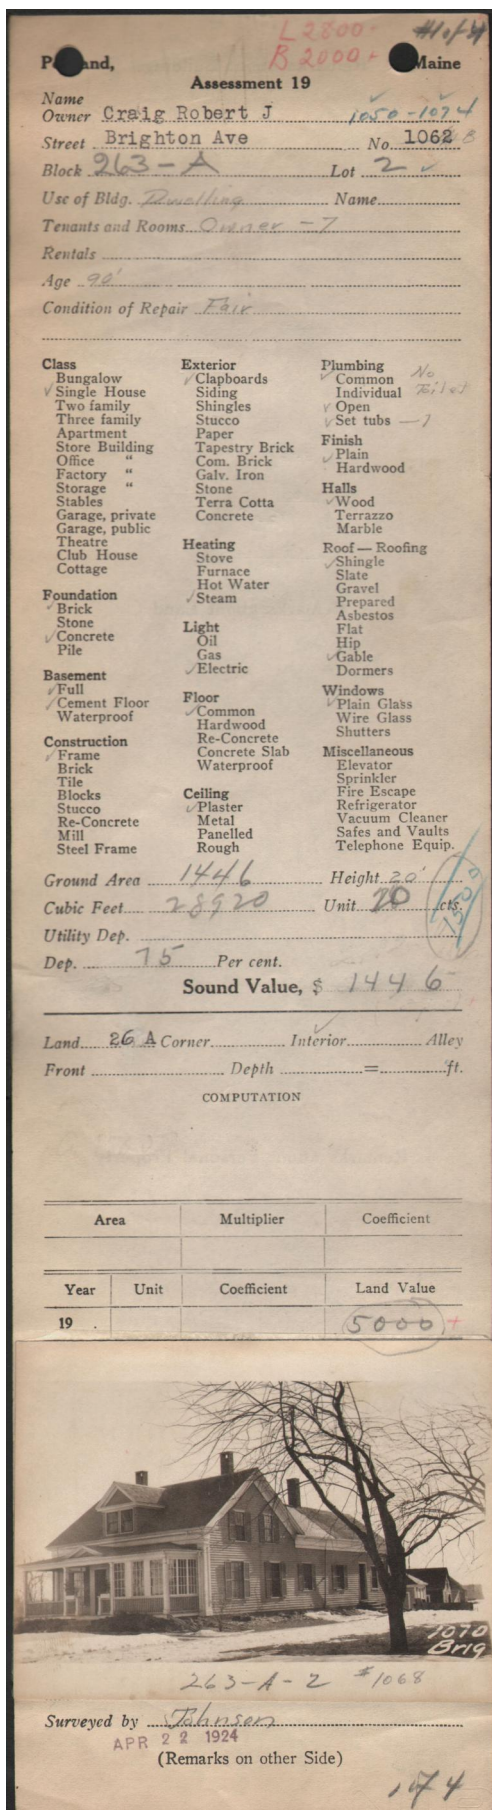 L 2800-
B 2000-
Maine
Assessment 19
Name
Owner Craig Robert J 1050-1074
Street Brighton Ave No. 1062
Block 263-A Lot 2
Use of Bldg. Dwelling Name
Tenants and Rooms Owner - 7
Rentals
Age 90'
Condition of Repair Fair
Class
Bungalow
Single House
Two family
Three family
Apartment
Store Building
Office "
Factory "
Storage "
Stables
Garage, private
Garage, public
Theatre
Club House
Cottage
Foundation
Brick
Stone
Concrete
Pile
Basement
Full
Cement Floor
Waterproof
Construction
Frame
Brick
Tile
Blocks
Stucco
Re-Concrete
Mill
Steel Frame
Exterior
Clapboards
Siding
Shingles
Stucco
Paper
Tapestry Brick
Com. Brick
Galv. Iron
Stone
Terra Cotta
Concrete
Heating
Stove
Furnace
Hot Water
Steam
Light
Oil
Gas
Electric
Floor
Common
Hardwood
Re-Concrete
Concrete Slab
Waterproof
Ceiling
Plaster
Metal
Panelled
Rough
Plumbing
Common No
Individual Toilet
Open
Set tubs - 1
Finish
Plain
Hardwood
Halls
Wood
Terrazzo
Marble
Roof — Roofing
Shingle
Slate
Gravel
Prepared
Asbestos
Flat
Hip
Gable
Dormers
Windows
Plain Glass
Wire Glass
Shutters
Miscellaneous
Elevator
Sprinkler
Fire Escape
Refrigerator
Vacuum Cleaner
Safes and Vaults
Telephone Equip.
Ground Area 1446 Height 20'
Cubic Feet 28920 Unit 20 cts.
Utility Dep.
Dep. 75 Per cent.
Sound Value, $ 1446
Land 26 A Corner Interior Alley
Front Depth = ft.
COMPUTATION
Area Multiplier Coefficient
Year Unit Coefficient Land Value
19 5000 +
1070
Brig
263-A-2 #1068
Surveyed by Johnson
APR 22 1924
(Remarks on other Side)